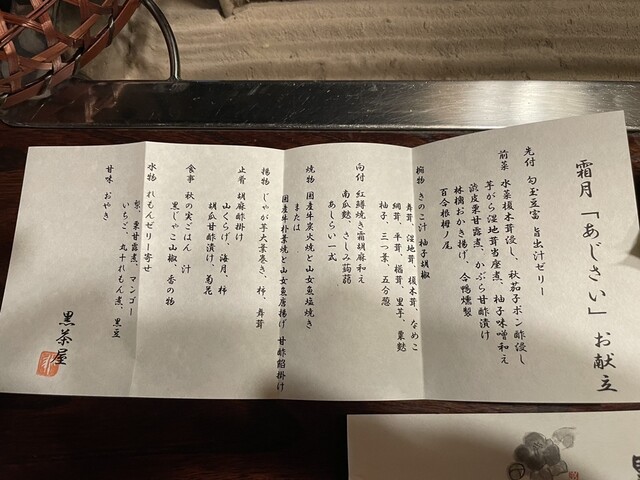 霜月「あじさい」お献立
先付 勾玉豆富 旨出汁ゼリー
前菜 水菜榎木茸浸し、秋茄子ポン酢浸し
芋がら湿地茸当座煮、柚子味噌和え
渋皮栗甘露煮、かぶら甘酢漬け
林檎おかき揚げ、合鴨燻製
百合根梅ノ尾
椀物 きのこ汁 柚子胡椒
舞茸、湿地茸、榎木茸、なめこ
網茸、平茸、椎茸、里芋、粟麩
柚子、三つ葉、五分葱
向付 紅鱒焼き霜胡麻和え
南瓜麩、さしみ蒟蒻
あしらい一式
焼物 国産牛炭火焼と山女魚塩焼き
または
国産牛朴葉焼と山女魚唐揚げ 甘酢餡掛け
揚物 じゃが芋大葉巻き、柿、舞茸
止肴 胡麻酢掛け
山くらげ、海月、柿
胡瓜甘酢漬け、菊花
食事 秋の実ごはん 汁
黒じゃこ山椒、香の物
水物 れもんゼリー寄せ
梨、栗甘露煮、マンゴー
いちご、丸十れもん煮、黒豆
甘味 おやき
黒茶屋